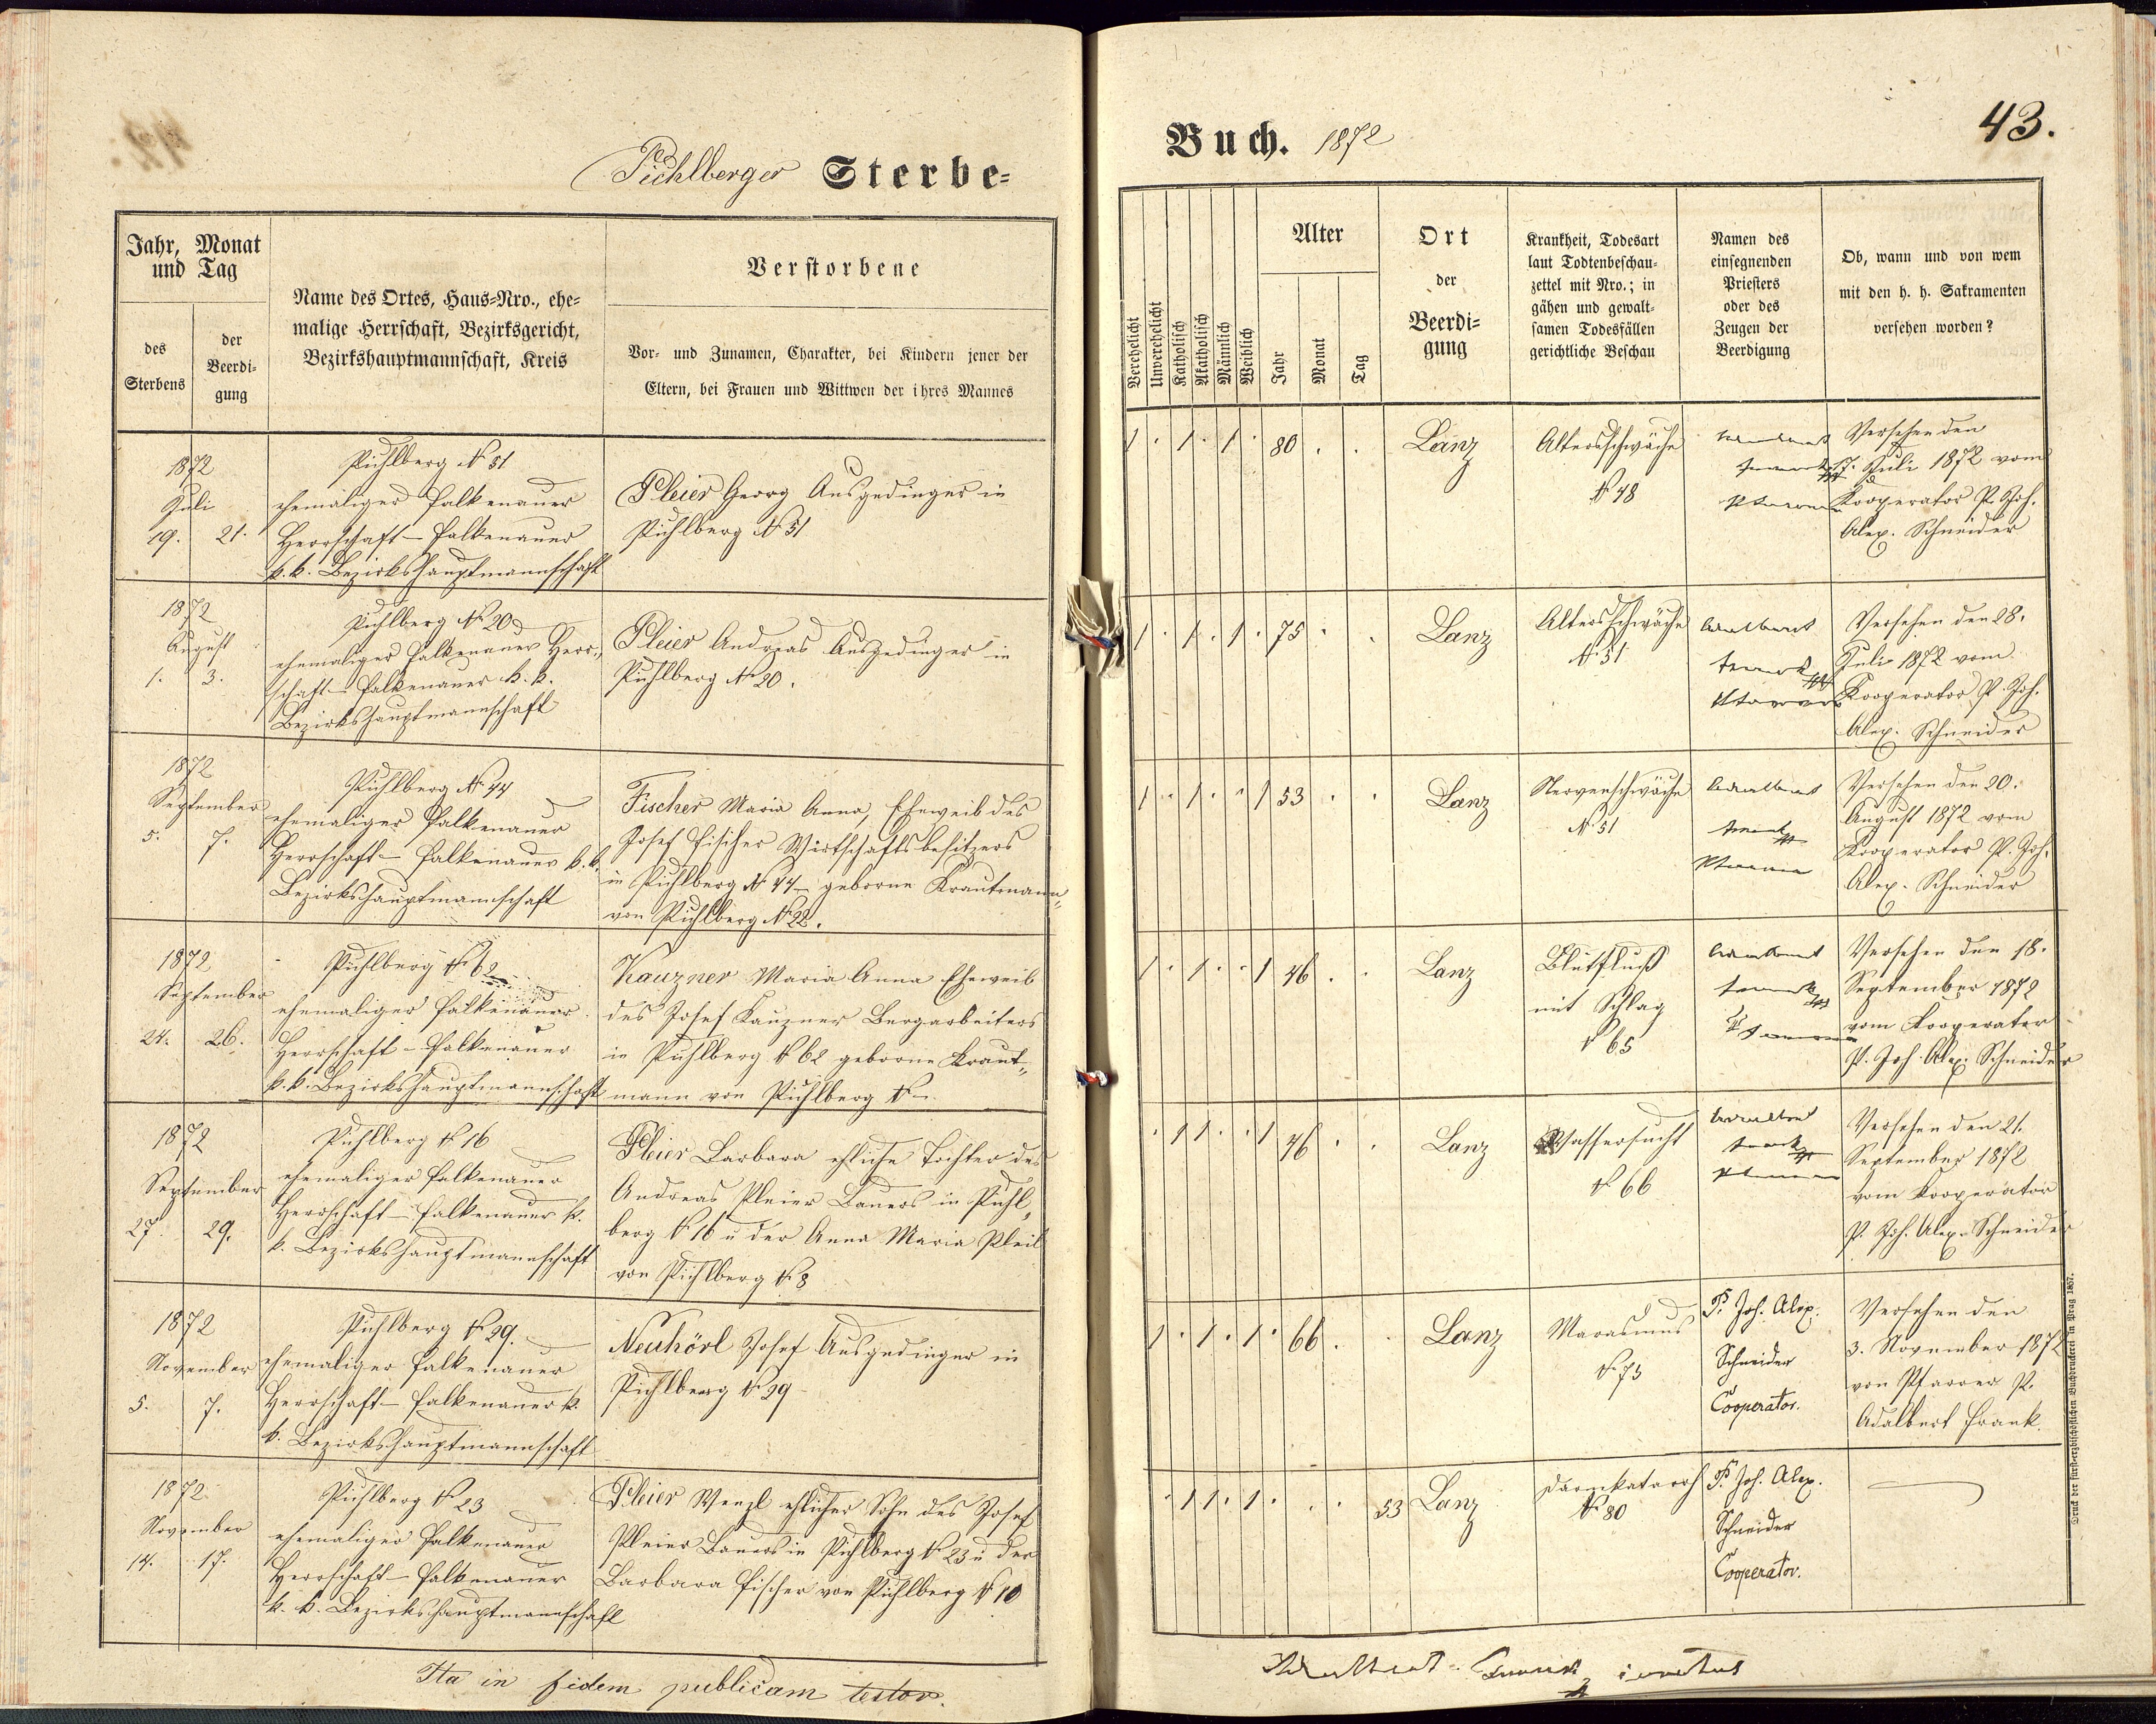 Pichlberger Sterbe=
Jahr, Monat
und Tag
des
Sterbens
der
Beerdi=
gung
Name des Ortes, Haus=Nro., ehe=
malige Herrschaft, Bezirksgericht,
Bezirkshauptmannschaft, Kreis
Verstorbene
Vor= und Zunamen, Charakter, bei Kindern jener der
Eltern, bei Frauen und Wittwen der ihres Mannes
1872
Juli
19. 21.
Pichlberg N 51
ehemaliger Falkenauer
Herrschaft – Falkenauer
k. k. Bezirkshauptmannschaft
Pleier Georg Ausgedinger in
Pichlberg N 51
1872
August
1. 3.
Pichlberg N 20
ehemaliger Falkenauer Herr=
schaft – Falkenauer k. k.
Bezirkshauptmannschaft
Pleier Andreas Ausgedinger in
Pichlberg N 20.
1872
September
5. 7.
Pichlberg N 44
ehemaliger Falkenauer
Herrschaft – Falkenauer k. k.
Bezirkshauptmannschaft
Fischer Maria Anna, Eheweib des
Josef Fischer Wirtschaftsbesitzers
in Pichlberg N 44 – geborne Krautmann
von Pichlberg N 22.
1872
September
24. 26.
Pichlberg N 62
ehemaliger Falkenauer
Herrschaft – Falkenauer
k. k. Bezirkshauptmannschaft
Kauzner Maria Anna Eheweib
des Josef Kauzner Bergarbeiters
in Pichlberg N 62 geborne Kraut=
mann von Pichlberg N –
1872
September
27. 29.
Pichlberg N 16
ehemaliger Falkenauer
Herrschaft – Falkenauer k.
k. Bezirkshauptmannschaft
Pleier Barbara ehliche Tochter des
Andreas Pleier Bauers in Pichl=
berg N 16 u der Anna Maria Pleil
von Pichlberg N 8
1872
November
5. 7.
Pichlberg N 29.
ehemaliger Falkenauer
Herrschaft – Falkenauer k.
k. Bezirkshauptmannschaft
Neuhörl Josef Ausgedinger in
Pichlberg N 29
1872
November
14. 17.
Pichlberg N 23
ehemaliger Falkenauer
Herrschaft – Falkenauer
k. k. Bezirkshauptmannschaft
Pleier Wenzl ehlicher Sohn des Josef
Pleier Bauers in Pichlberg N 23 u der
Barbara Fischer von Pichlberg N 10
Ita in fidem publicam testor.
Buch. 1872
43.
Verehelicht
Unverehelicht
Katholisch
Akatholisch
Männlich
Weiblich
Alter
Jahr
Monat
Tag
Ort
der
Beerdi=
gung
Krankheit, Todesart
laut Todtenbeschau=
zettel mit Nro.; in
gähen und gewalt=
samen Todesfällen
gerichtliche Beschau
Namen des
einsegnenden
Priesters
oder des
Zeugen der
Beerdigung
Ob, wann und von wem
mit den h. h. Sakramenten
versehen worden?
1 . 1 . 1 . 80 . . Lanz
Altersschwäche
N 48
Adalbert
Frank
Pfarrer
Versehen den
17. Juli 1872 vom
Kooperator P. Joh.
Alex. Schneider
1 . 1 . 1 . 75 . . Lanz
Altersschwäche
N 51
Adalbert
Frank
Pfarrer
Versehen den 28.
Juli 1872 vom
Kooperator P. Joh.
Alex. Schneider
1 . 1 . . 1 53 . . Lanz
Nervenschwäche
N 51
Adalbert
Frank
Pfarrer
Versehen den 20.
August 1872 vom
Kooperator P. Joh.
Alex. Schneider
1 . 1 . . 1 46 . . Lanz
Blutfluß
mit Schlag
N 65
Adalbert
Frank
Pfarrer
Versehen den 18.
September 1872
vom Kooperator
P. Joh. Alex. Schneider
. 1 1 . . 1 46 . . Lanz
Wassersucht
N 66
Adalbert
Frank
Pfarrer
Versehen den 21.
September 1872
vom Kooperator
P. Joh. Alex. Schneider
1 . 1 . 1 . 66 . . Lanz
Marasmus
N 73
P. Joh. Alex.
Schneider
Cooperator.
Versehen den
3. November 1872
von Pfarrer P.
Adalbert Frank
. 1 1 . 1 . . . 53 Lanz
Darmkatarrh
N 80
P. Joh. Alex.
Schneider
Cooperator.
Adalbert Frank
Druck der fürsterzbischöflichen Buchdruckerei in Prag 1857.